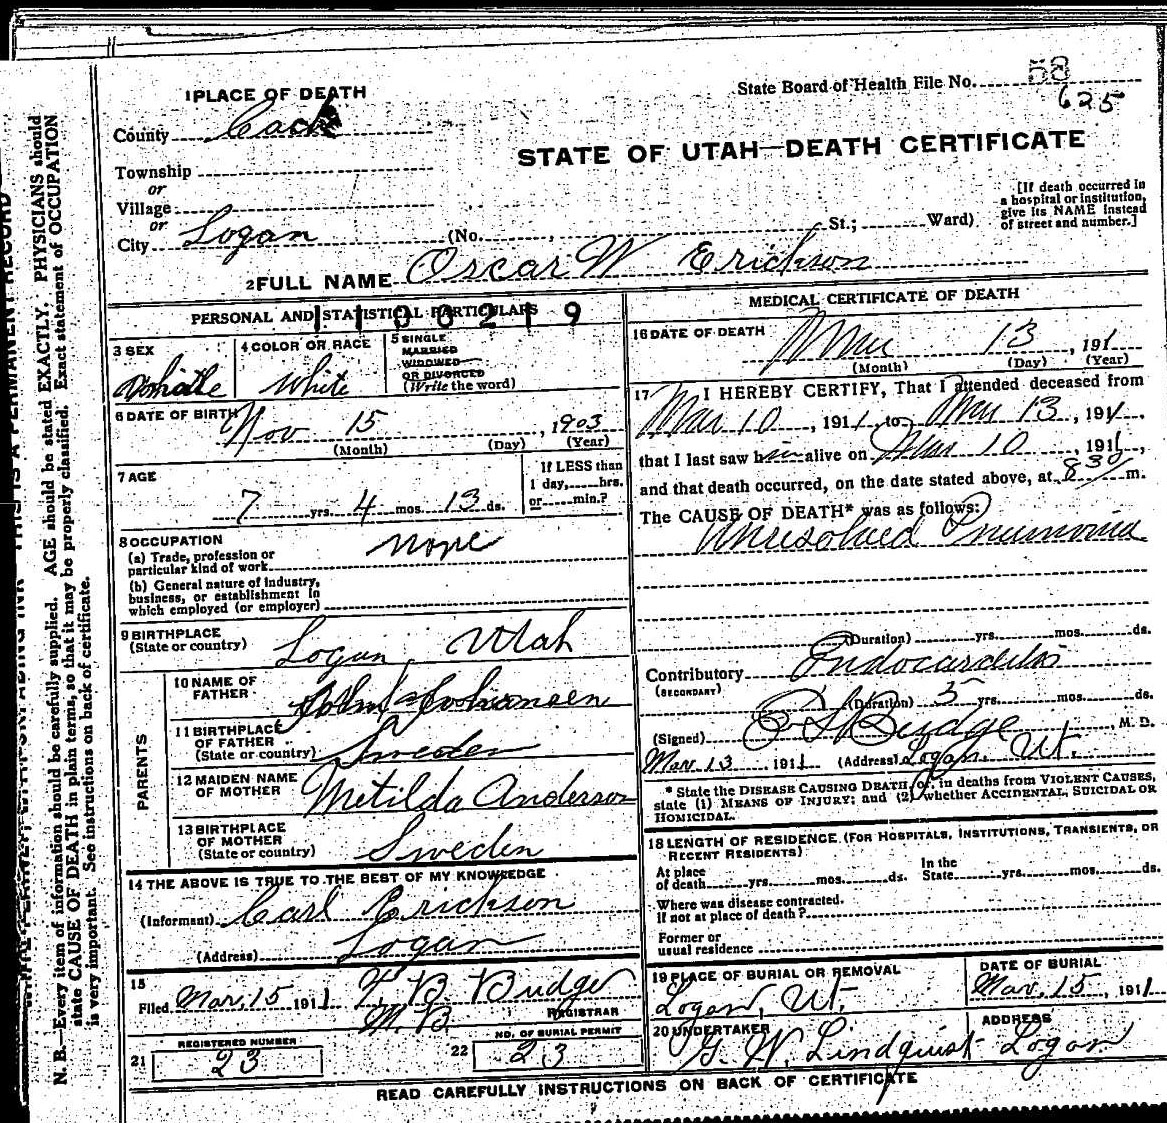 State Board of Health File No. 58
625
1 PLACE OF DEATH
County Cache
STATE OF UTAH—DEATH CERTIFICATE
Township
or
Village
or
City Logan (No. , St.; Ward)
[If death occurred in
a hospital or institution,
give its NAME instead
of street and number.]
2 FULL NAME Oscar W Erickson
PERSONAL AND STATISTICAL PARTICULARS
1100219
3 SEX
Male
4 COLOR OR RACE
White
5 SINGLE
MARRIED
WIDOWED
OR DIVORCED
(Write the word)
6 DATE OF BIRTH
Nov 15, 1903
(Month) (Day) (Year)
7 AGE
7 yrs. 4 mos. 13 ds.
If LESS than
1 day, hrs.
or min.?
8 OCCUPATION
(a) Trade, profession or
particular kind of work None
(b) General nature of industry,
business, or establishment in
which employed (or employer)
9 BIRTHPLACE
(State or country) Logan, Utah
PARENTS
10 NAME OF
FATHER
11 BIRTHPLACE
OF FATHER
(State or country) Sweden
12 MAIDEN NAME
OF MOTHER Metilda Anderson
13 BIRTHPLACE
OF MOTHER
(State or country) Sweden
14 THE ABOVE IS TRUE TO THE BEST OF MY KNOWLEDGE
(Informant) Carl Erickson
(Address) Logan
15
Filed Mar. 15 1911 T. B. Budge
M.D. REGISTRAR
21 REGISTERED NUMBER
23
22 NO. OF BURIAL PERMIT
23
MEDICAL CERTIFICATE OF DEATH
16 DATE OF DEATH
Mar 13, 191
(Month) (Day) (Year)
17 I HEREBY CERTIFY, That I attended deceased from
Mar 10, 1911, to Mar 13, 1911,
that I last saw him alive on Mar 10, 1911,
and that death occurred, on the date stated above, at 8 30 m.
The CAUSE OF DEATH* was as follows:
Unresolved Pneumonia
(Duration) yrs. mos. ds.
Contributory Endocarditis
(SECONDARY)
(Duration) 5 yrs. mos. ds.
(Signed) Budge, M. D.
Mar 13 1911 (Address) Logan Ut.
* State the DISEASE CAUSING DEATH, or, in deaths from VIOLENT CAUSES,
state (1) MEANS OF INJURY; and (2) whether ACCIDENTAL, SUICIDAL OR
HOMICIDAL.
18 LENGTH OF RESIDENCE (FOR HOSPITALS, INSTITUTIONS, TRANSIENTS, OR
RECENT RESIDENTS)
At place
of death yrs. mos. ds.
In the
State yrs. mos. ds.
Where was disease contracted.
If not at place of death?
Former or
usual residence
19 PLACE OF BURIAL OR REMOVAL
Logan, Ut.
DATE OF BURIAL
Mar. 15, 1911
20 UNDERTAKER
G. W. Lindquist
ADDRESS
Logan
READ CAREFULLY INSTRUCTIONS ON BACK OF CERTIFICATE
N. B.—Every item of information should be carefully supplied. AGE should be stated EXACTLY. PHYSICIANS should
state CAUSE OF DEATH in plain terms, so that it may be properly classified. Exact statement of OCCUPATION
is very important. See instructions on back of certificate.